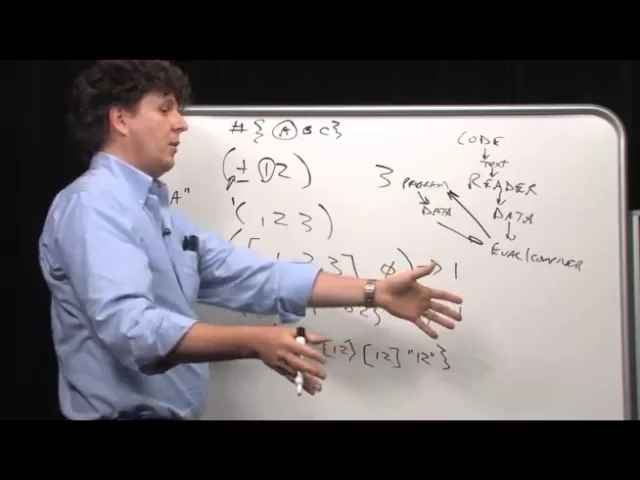 #{ A B C }
(+ 1 2)
A"
'( 1 2 3 )
1 2 3] 0) → 1
[12] "12" }
CODE
TEXT
READER
3 PROGRAM
DATA
DATA
EVAL/COMPILER